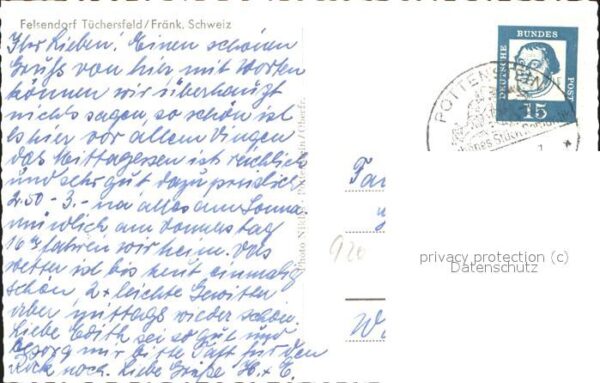 Felsendorf Tüchersfeld/Fränk. Schweiz
Ihr Lieben! Einen schönen
Gruß von hier mit Worten
können wir überhaupt
nichts sagen, so schön ist
es hier vor allem Dingen
das Mittagessen ist reichlich
und sehr gut dazu preislich
2.50 - 3.- na alles am Sonna
mündlich am Donnerstag
16 fahren wir heim. Das
Wetter ist bis heut einmalig
schön 2x leichte Gewitter
aber mittags wieder schön.
Liebe Edith sei so gut und
besorg mir bitte Taft für den
Rock noch. Liebe Grüße H. + E.
DEUTSCHE BUNDESPOST
15
POTTENSTEIN
Fa
W
920
privacy protection (c)
Datenschutz